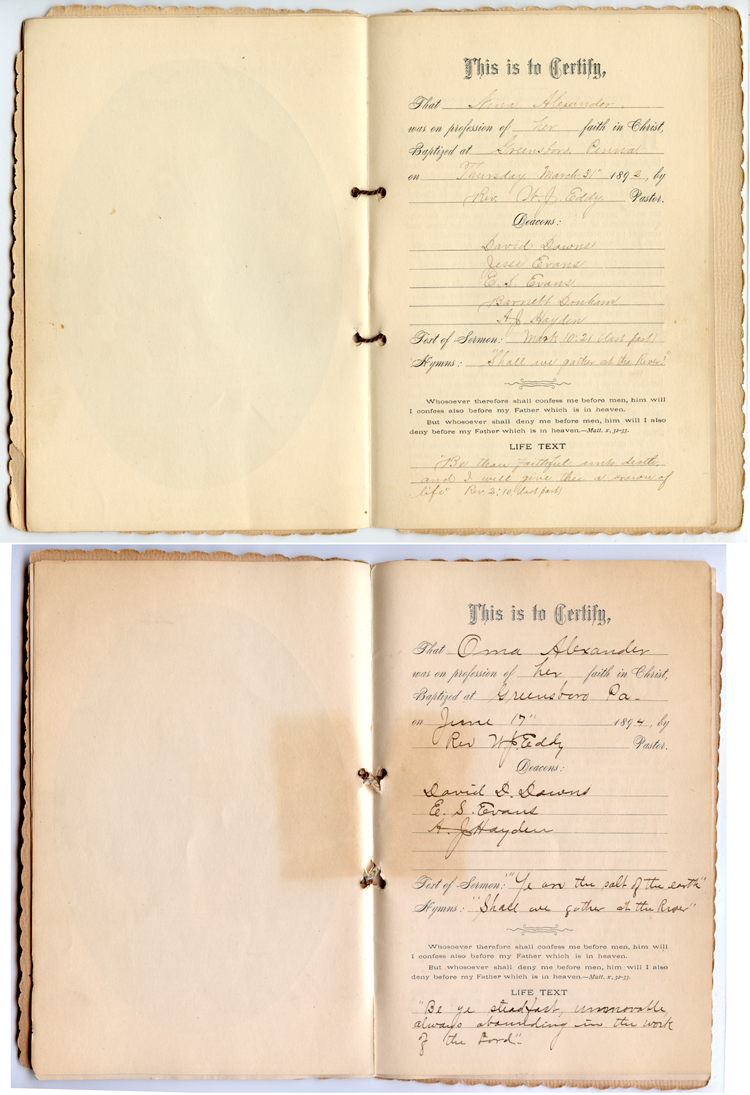 This is to Certify,
That Nina Alexander
was on profession of her faith in Christ,
Baptized at Greensboro, Penna
on Thursday March 31st 1892, by
Rev. W. J. Eddy Pastor.
Deacons:
David Downs
Jesse Evans
E. S. Evans
Barnett Donham
A J Hayden
Text of Sermon: Mark 10:21 (last part)
Hymns: "Shall we gather at the River."
Whosoever therefore shall confess me before men, him will
I confess also before my Father which is in heaven.
But whosoever shall deny me before men, him will I also
deny before my Father which is in heaven.—Matt. x, 32-33.
LIFE TEXT
"Be thou faithful unto death,
and I will give thee a crown of
life" Rev 2:10 (last part)
This is to Certify,
That Oma Alexander
was on profession of her faith in Christ,
Baptized at Greensboro Pa.
on June 17" 1894, by
Rev W. J. Eddy Pastor.
Deacons:
David D. Downs
E. S. Evans
A. J. Hayden
Text of Sermon: "Ye are the salt of the earth"
Hymns: "Shall we gather at the River"
Whosoever therefore shall confess me before men, him will
I confess also before my Father which is in heaven.
But whosoever shall deny me before men, him will I also
deny before my Father which is in heaven.—Matt. x, 32-33.
LIFE TEXT
"Be ye steadfast, unmovable,
always abounding in the work
of the Lord".